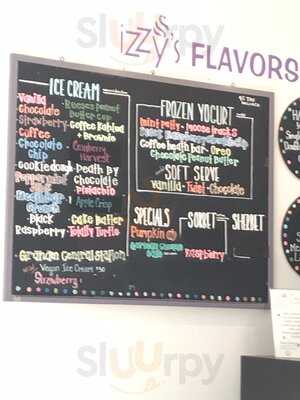 izzy's FLAVORS
ICE CREAM
Vanilla
Chocolate
Strawberry
Coffee
Chocolate
Chip
cookie dough
Peppermint
Black
Raspberry
Reeses Peanut
butter cup
Coffee Kahlua
+ Brownie
Cranberry
Harvest
Death by
Chocolate
Pistachio
Apple Crisp
Cake Batter
Totally Turtle
Grandma Central Station
Vegan Ice Cream
Strawberry
FROZEN YOGURT
Mint patty - Moose tracks
Coffee heath bar - Oreo
Chocolate Peanut butter
SOFT SERVE
Vanilla - Twist - Chocolate
SPECIALS
Pumpkin
SORBET
Raspberry
SHERBET
Sluurpy
Sluurpy